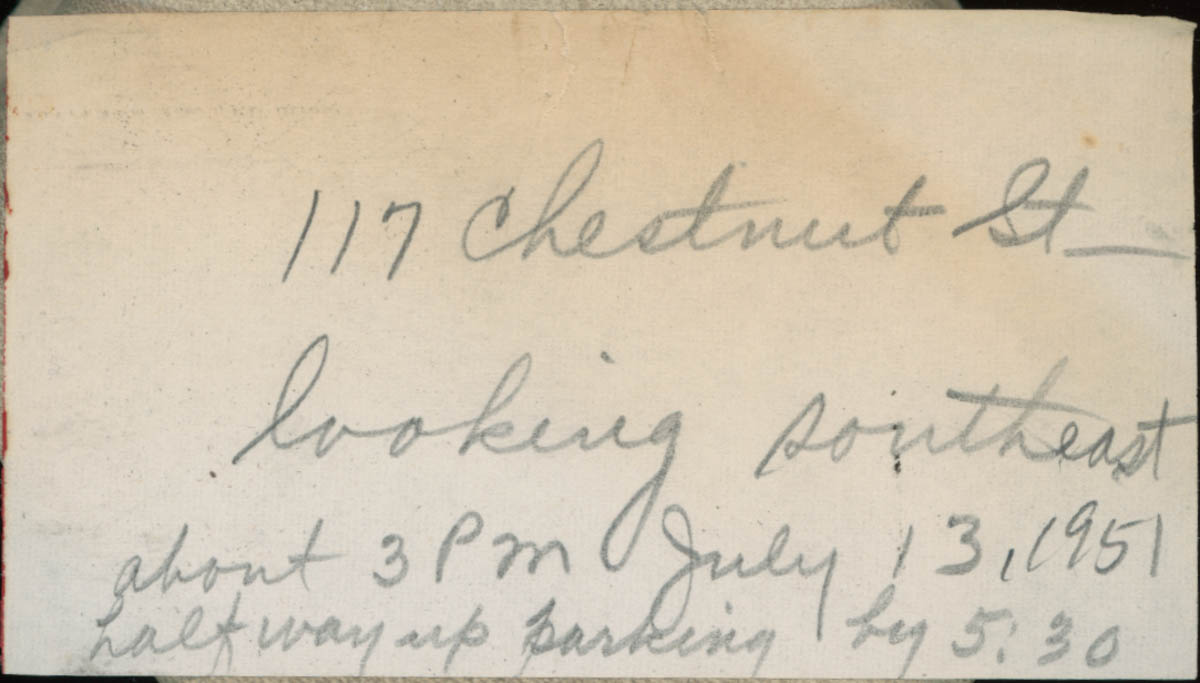 117 Chestnut St —
looking southeast
about 3 P m July 13, 1951
half way up parking by 5:30